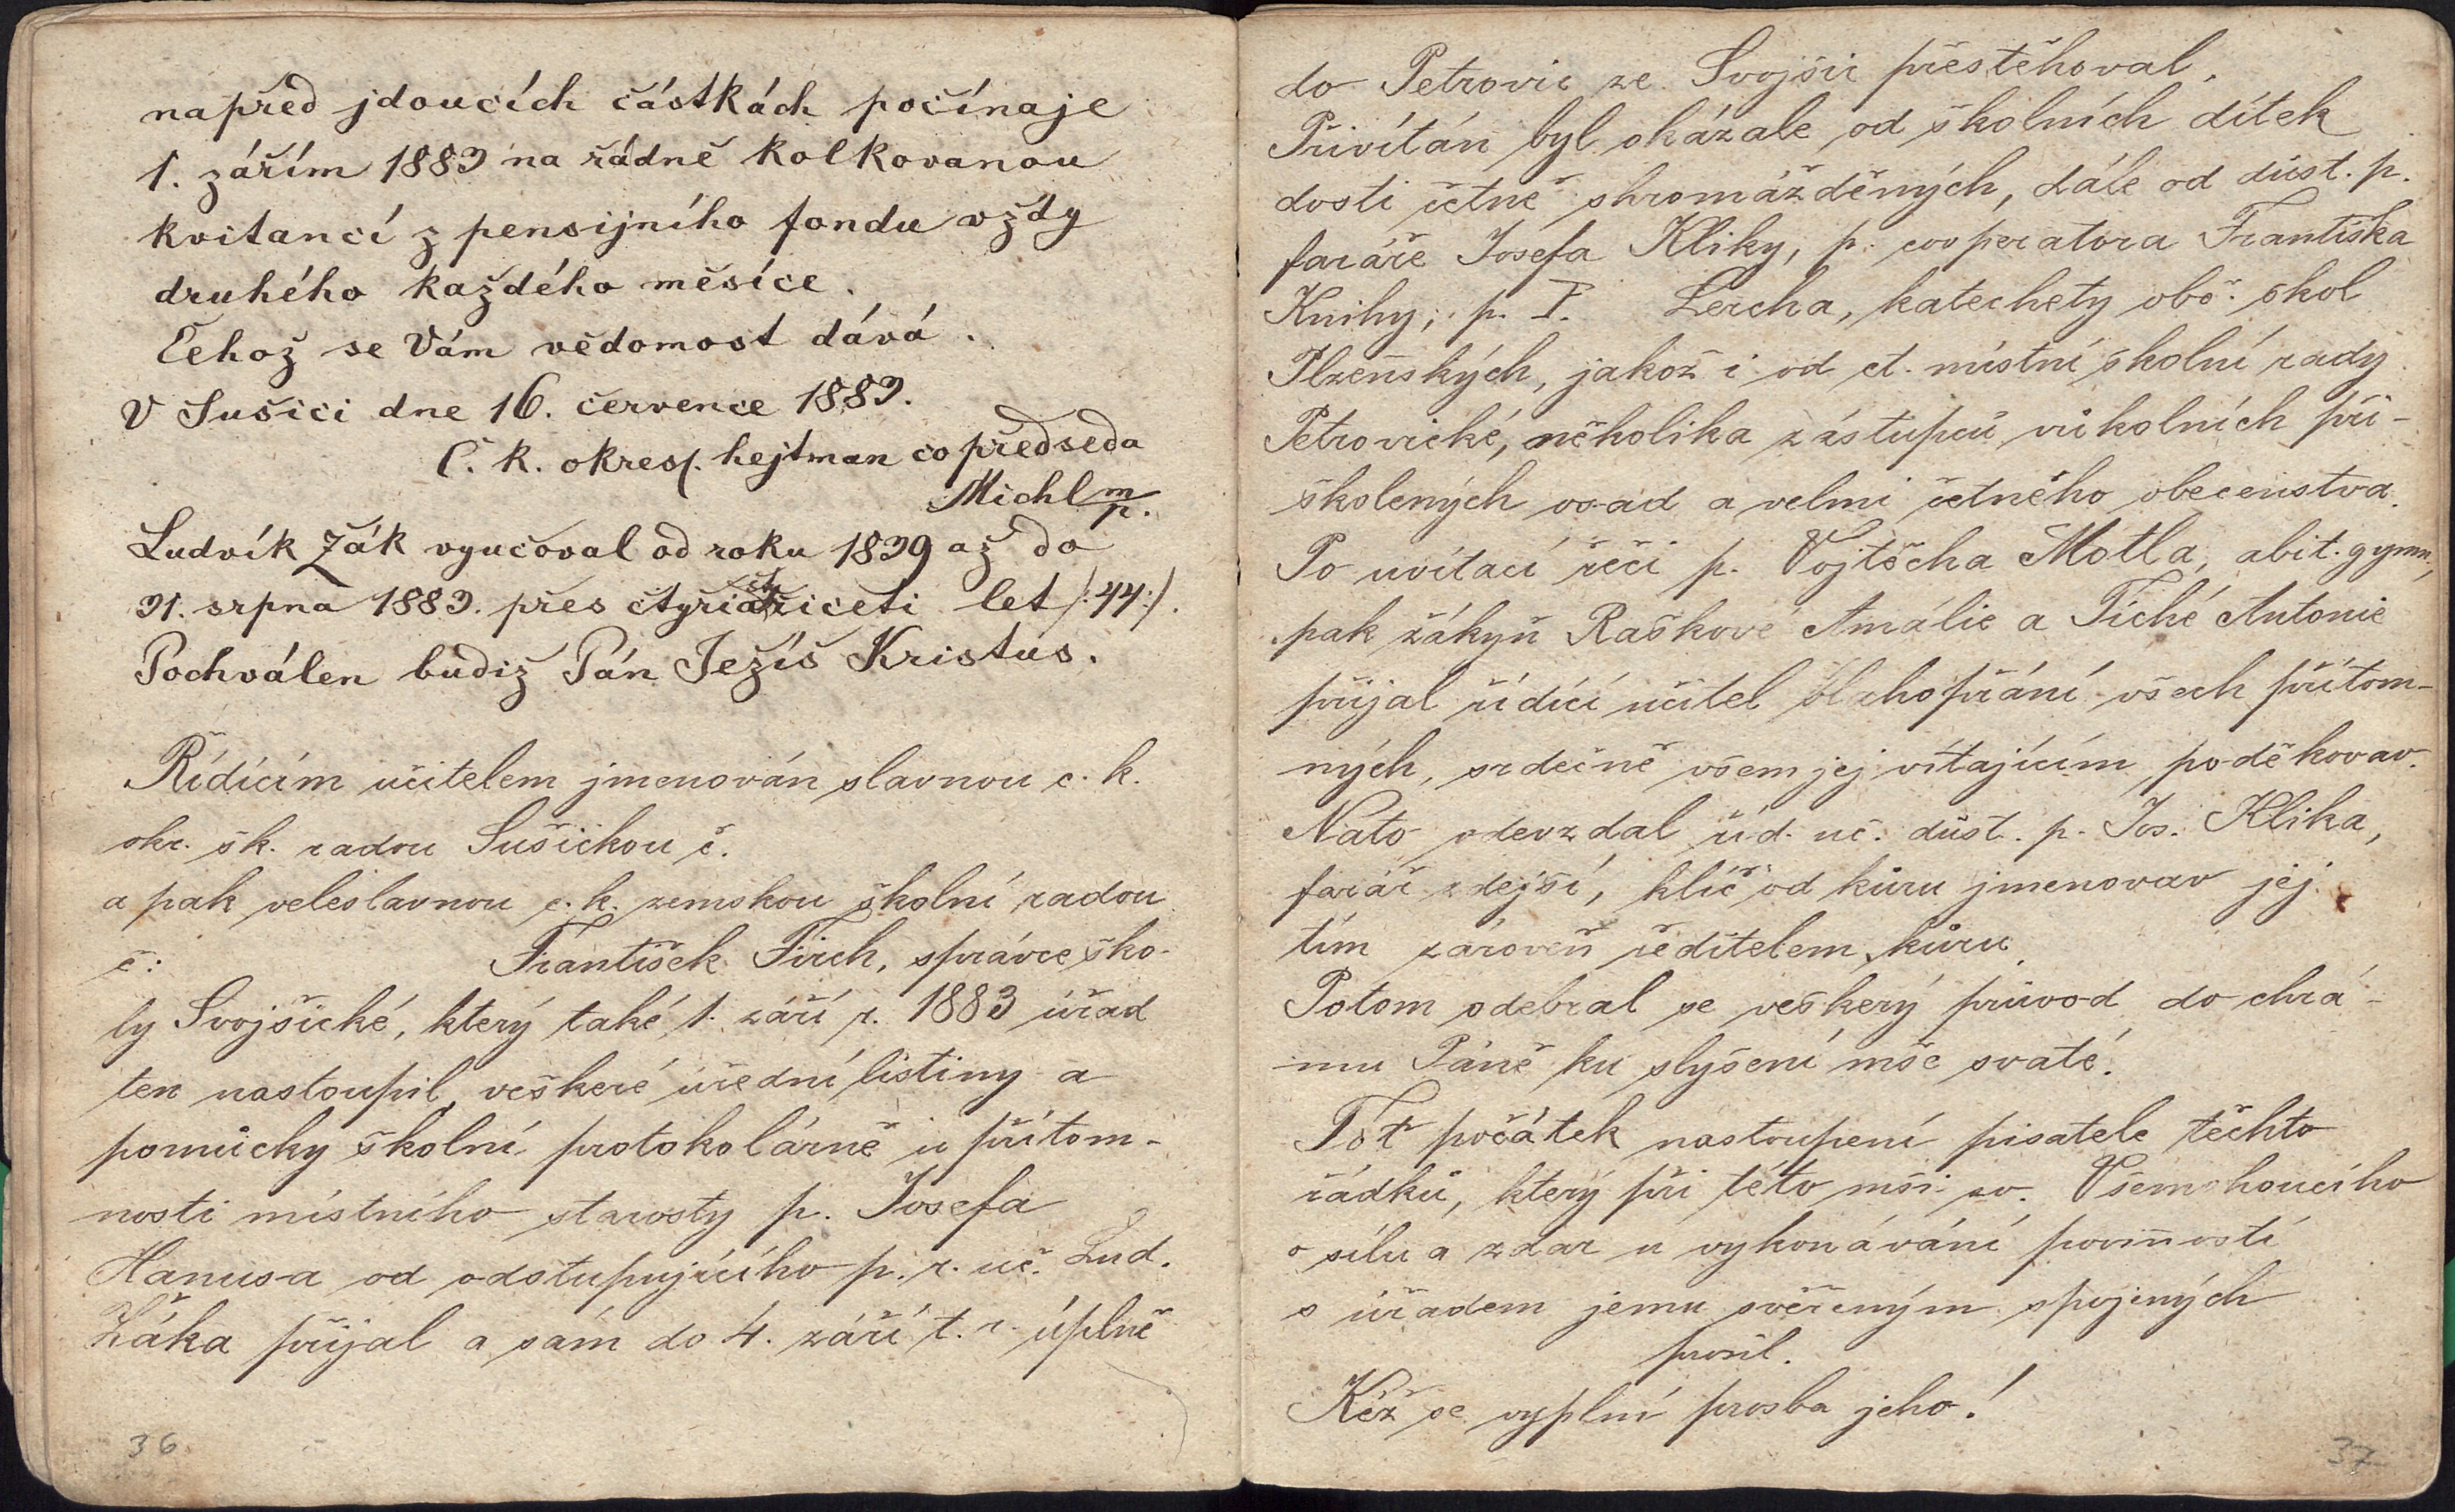 napřed jdoucích částkách počínaje
1. zářím 1883 na řádně kolkovanou
kvitancí z pensijního fondu vždy
druhého každého měsíce.
Čehož se Vám vědomost dává.
V Sušici dne 16. července 1883.
C. k. okres. hejtman co předseda
Michl m/p.
Ludvík Žák vyučoval od roku 1839 až do
31. srpna 1883. přes čtyřiačtyřiceti let /:44:/.
Pochválen budiž Pán Ježíš Kristus.
Řídícím učitelem jmenován slavnou c. k.
okr. šk. radou Sušickou č.
a pak veleslavnou c. k. zemskou školní radou
č: František Tirch, správce ško-
ly Svojšické, který také 1. září r. 1883 úřad
ten nastoupil, veškeré úřední listiny a
pomůcky školní protokolárně u přítom-
nosti místního starosty p. Josefa
Hanusa od odstupujícího p. r. uč. Lud.
Žáka přijal a sám do 4. září t. r. úplně
36
do Petrovic ze Svojšic přestěhoval.
Přivítán byl okázale od školních dítek
dosti četně shromážděných, dále od důst. p.
faráře Josefa Kliky, p. cooperatora Františka
Knihy; p. F. Lercha, katechety obč. škol
Plzeňských, jakož i od ct. místní školní rady
Petrovické, několika zástupců vůkolních při-
školených osad a velmi četného obecenstva.
Po uvítací řeči p. Vojtěcha Motla, abit. gymn.,
pak žákyň Raškové Amálie a Tiché Antonie
přijal řídící učitel blahopřání všech přítom-
ných, srdečně všem jej vítajícím poděkovav.
Nato odevzdal říd. uč. důst. p. Jos. Klika,
farář zdejší, klíč od kůru jmenovav jej
tím zároveň ředitelem kůru.
Potom odebral se veškerý průvod do chrá-
mu Páně ku slyšení mše svaté.
Toť počátek nastoupení pisatele těchto
řádků, který při této mši sv. Všemohoucího
o sílu a zdar u vykonávání povinností
s úřadem jemu svěřeným spojených
prosil.
Kéž se vyplní prosba jeho!
37